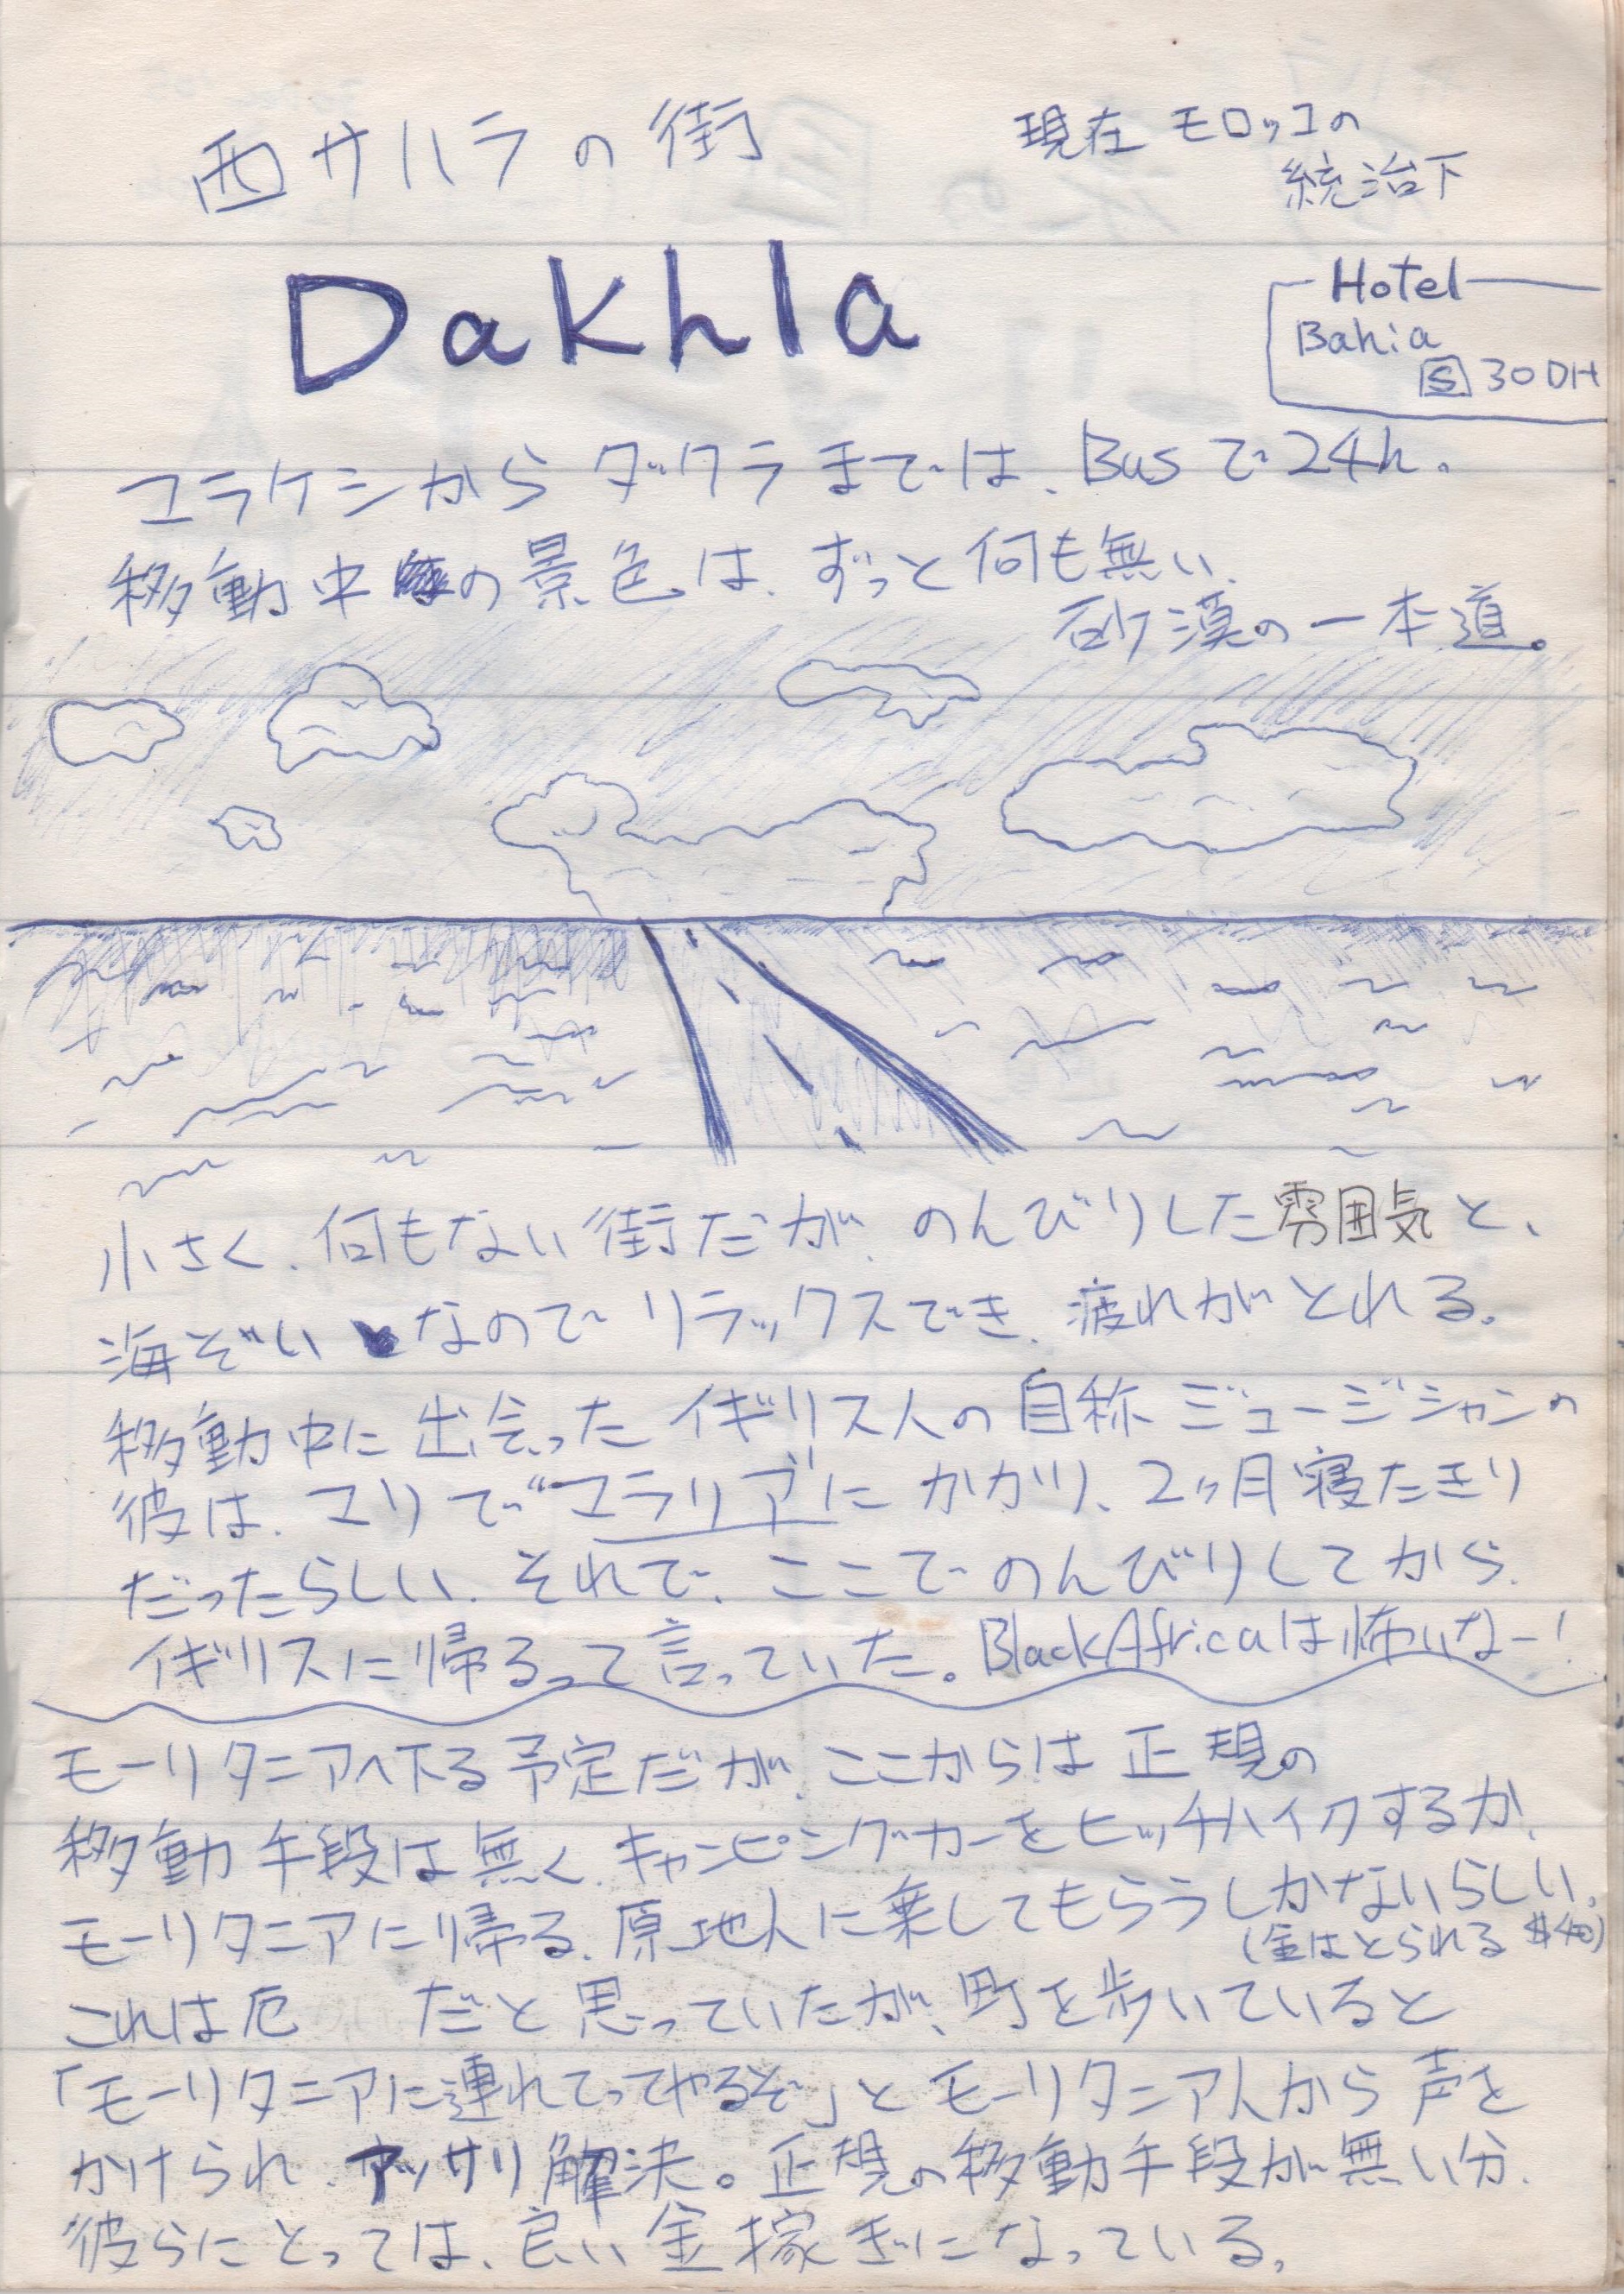 西サハラの街
現在 モロッコの
統治下
Dakhla
Hotel
Bahia
S 30DH
マラケシからダックラまでは、Busで24h。
移動中の景色は、ずっと何も無い、
砂漠の一本道。
小さく、何もない街だが、のんびりした雰囲気と、
海ぞいなのでリラックスでき、疲れがとれる。
移動中に出会ったイギリス人の自称ミュージシャンの
彼は、マリで"マラリア"にかかり、2ヶ月寝たきり
だったらしい。それで、ここでのんびりしてから、
イギリスに帰るって言っていた。BlackAfricaは怖いなー!
モーリタニアへ下る予定だが、ここからは正規の
移動手段は無く、キャンピングカーをヒッチハイクするか、
モーリタニアに帰る、原地人に乗してもらうしかないらしい。
(金はとられる $40)
これは厄 だと思っていたが、町を歩いていると
「モーリタニアに連れてってやるぞ」とモーリタニア人から声を
かけられ、アッサリ解決。正規の移動手段が無い分、
彼らにとっては、良い金稼ぎになっている。